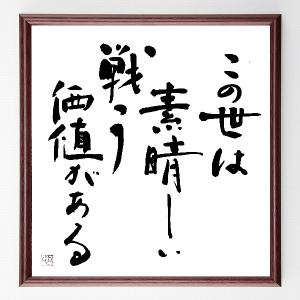 この世は
素晴しい
戦う
価値がある